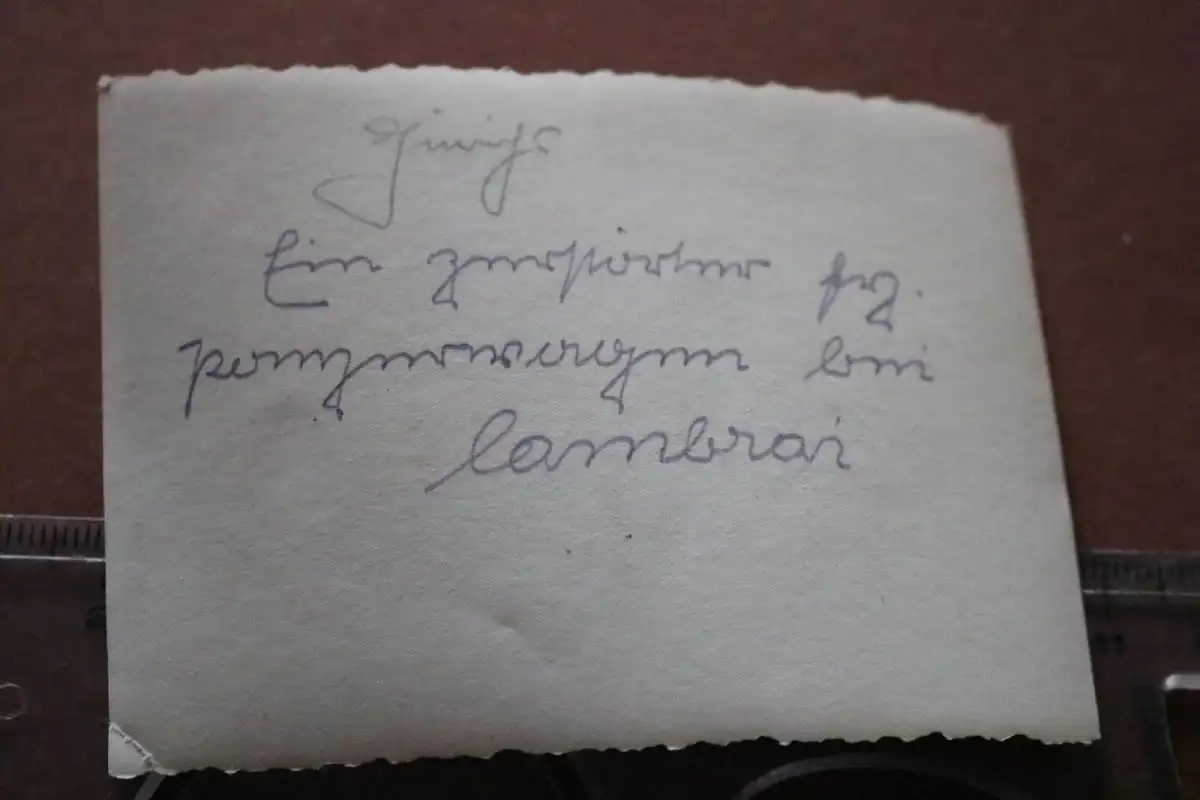 Ein zerstörter frz.
Panzerwagen bei
Cambrai